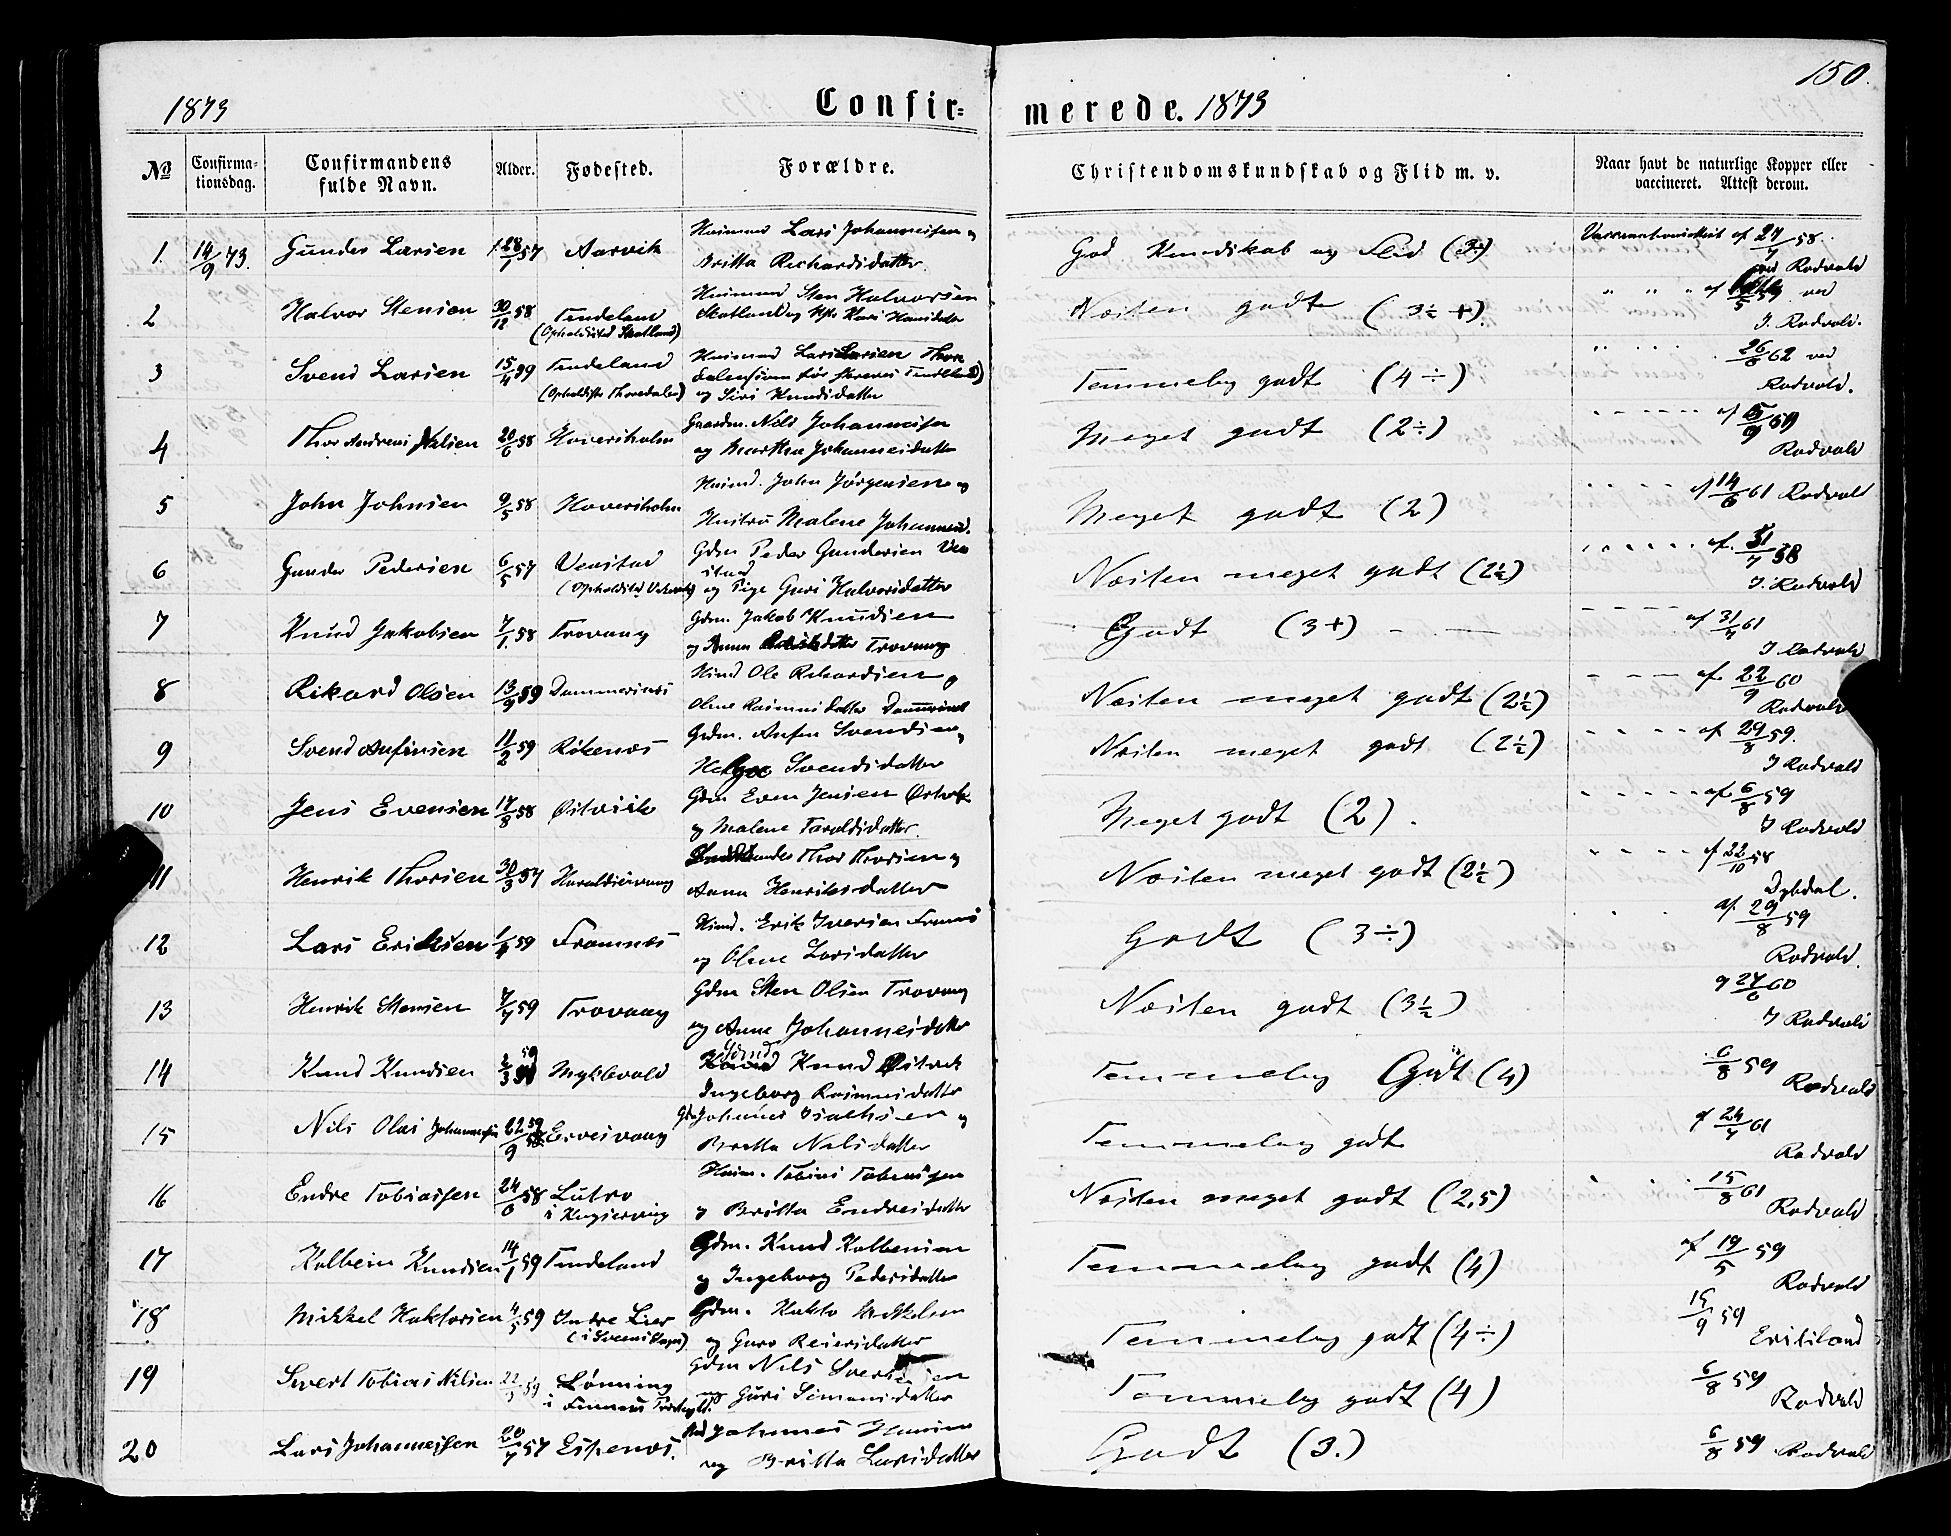 150.
1873 Confirmerede. 1873
No Confirmationsdag. Confirmandens fulde Navn. Alder. Fødested. Forældre. Christendomskundskab og Flid m. v. Naar havt de naturlige Kopper eller vaccineret. Attest derom.
1 14/9 73. Gunder Larsen 57 Aarvik Huusmand Lars Johannessen og
Britta Richardsdatter. God Kundskab og Flid (3+) af 27/7 58 ved Rødvold
2 Halvor Stensen 30/12 58 Tendeland Huusmand Sten Halvorsen
(Opholdssted Skotland) Skotland og Kari Næsten godt (3½ +) af ved
J. Rødvold.
3 Svend Larsen 15/4 59 Tendeland Huusmand Lars Larsen
og Siri Knudsdatter Temmelig godt (4 ÷) 26/8 62 ved
Rødvold.
4 Thor Andreas Nilsen 20/6 58 Hoversholm Gaardm. Nils Johannessen
og Martha Johannesdatter Meget godt (2 ÷) af
Rødvold
5 John Johnsen 9/5 58 Hoversholm Huusmd. John Jørgensen og
Hustru Malene Johannesd. Meget godt (2) af 14/6 61 Rødvold
6 Gunder Pedersen 6/5 57 Veastad Gdm Peder Gundersen Vea
stad
og Pige Guri Halvorsdatter Næsten meget godt (2½) af 31/7 58
J. Rødvold
7 Knud Jakobsen 7/1 58 Trovaag Gdm. Jakob Knudsen
og Anna Trovaag Godt (3+) af 31/7 61
J Rødvold
8 Rikard Olsen 13/9 59 Dommersnes Huusmd Ole Richardsen og
Oline Rasmusdatter Næsten meget godt (2½) af 22/9 60
Rødvold
9 Svend Anfinsen 11/2 59 Røkenes Gdm. Anfin Svendsen og
Helga Svendsdatter Næsten meget godt (2½) af 29/8 59.
J Rødvold
10 Jens Evensen 17/8 58 Østvik Gdm Even Jensen Østvik
og Malene Taraldsdatter. Meget godt (2). af 6/8 59
J Rødvold
11 Henrik Thorsen 30/3 57 Haraldseivaag Thor Thorsen og
Anna Henriksdatter Næsten meget godt (2½) af 22/10 58
Dybdal.
12 Lars Eriksen 59 Framnes Huusmd. Erik Iversen Framnes
og Oline Larsdatter Godt (3 ÷) af 29/8 59
Rødvold.
13 Henrik Stensen 7/7 59 Trovaag Gdm Sten Olsen Trovaag
og Anne Johannesdatter Næsten godt (3½) 27/6 60
J Rødvold
14 Knud Knudsen Myklevold Knud Østvik
Ingeborg Rasmusdatter Temmelig Godt (4) 6/8 59
Rødvold
15 Nils Olai Johannessen Eivesvaag Johannes Isachsen og
Britta Nilsdatter Temmelig godt af 24/7 61
Rødvold
16 Endre Tobiassen 24/6 58 Lutro
i Tobias Tobiassen
og Britta Endresdatter Næsten meget godt (2,5) 15/8 61
Rødvold
17 Kolbein Knudsen 14/1 59 Tendeland Gdm. Knud Kolbensen
og Ingeborg Pedersdatter Temmelig godt (4) af 19/5 59
Rødvold
18 Mikkel Haktorsen 4/5 59 Indre Lier Gdm. Haktor Mikkelsen
og Guro Reiersdatter Temmelig godt (4 ÷) 15/9 59
Eriksland
19 Sivert Tobias Nilsen Lønning Gdm Nils
og Guri Simonsdatter Temmelig godt (4) 6/8 59
Rødvold
20 Lars Johannessen 20/7 57 Espenes. Johannes Hansen
og Britta Larsdatter Godt (3.) 6/8 59 Rødvold